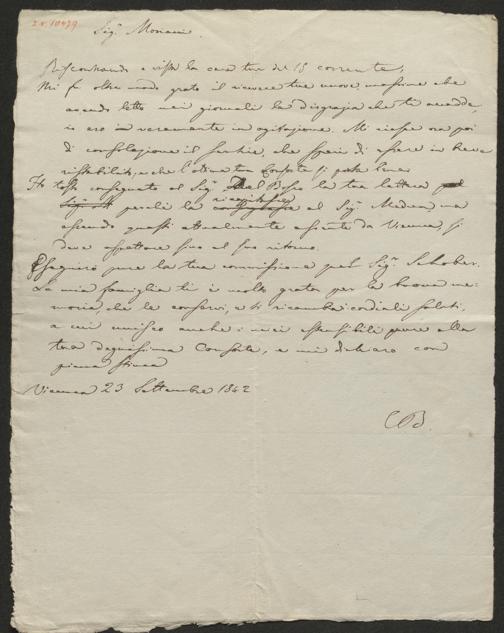 I.N. 10479
Sigr. Moriani.
Riscontrando a vista la cara tua del 15 corrente,
Mi fu oltre modo grato il ricevere tue nuove, massime che
avendo letto nei giornali la disgrazia che ti accadde,
io ero veramente in agitazione. Mi riesce ora poi
di consolazione il sentire, che speri di essere in breve
ristabilito, e che l'ottima tua Consorte si porta bene
Ho tosto consegnato al Sigr. Dal Bosco la tua lettera pel
perchè la al Sigr. ma
essendo questi attualmente assente da Vienna, si
deve aspettare fino al suo ritorno.
Eseguirò pure la tua commissione pel Sigr. Schober.
La mia famiglia ti è molto grata per la buona me-
moria, che le conservi, e ti ricambia i cordiali saluti,
a cui unisco anche i miei estensibili pure alla
tua degnissima Consorte, e mi dichiaro con
piena stima
Vienna 23 Settembre 1842
CB.